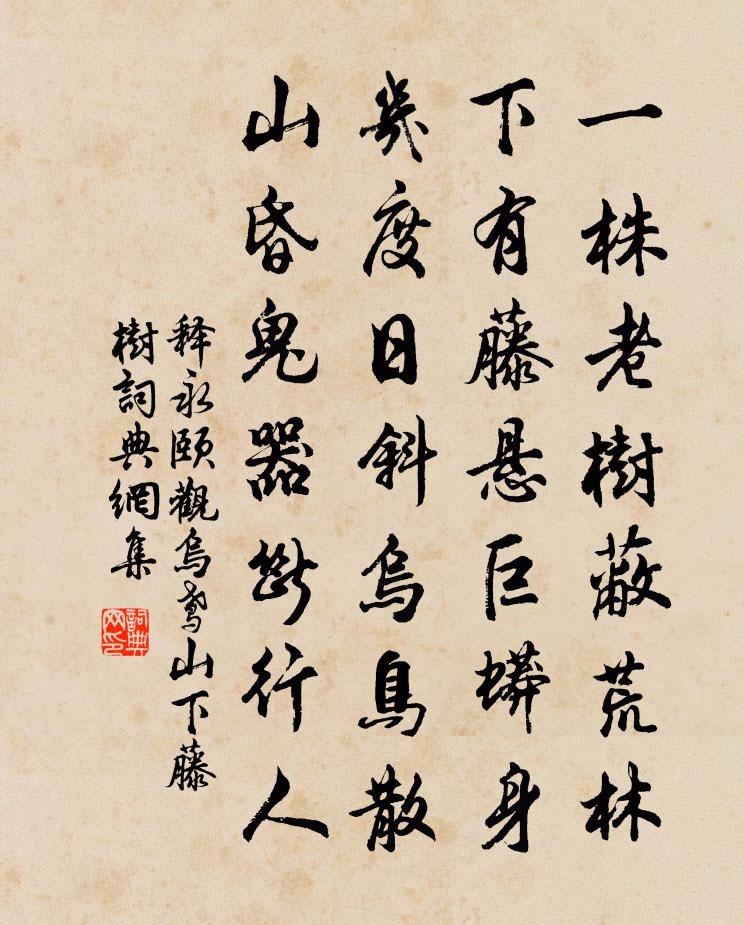 一株老樹蔽荒林
下有藤悬巨蟒身
幾度日斜烏鳥散
山昏鬼器斷行人
释永颐觀烏鸢山下藤
樹詞典網集
詞典
网印